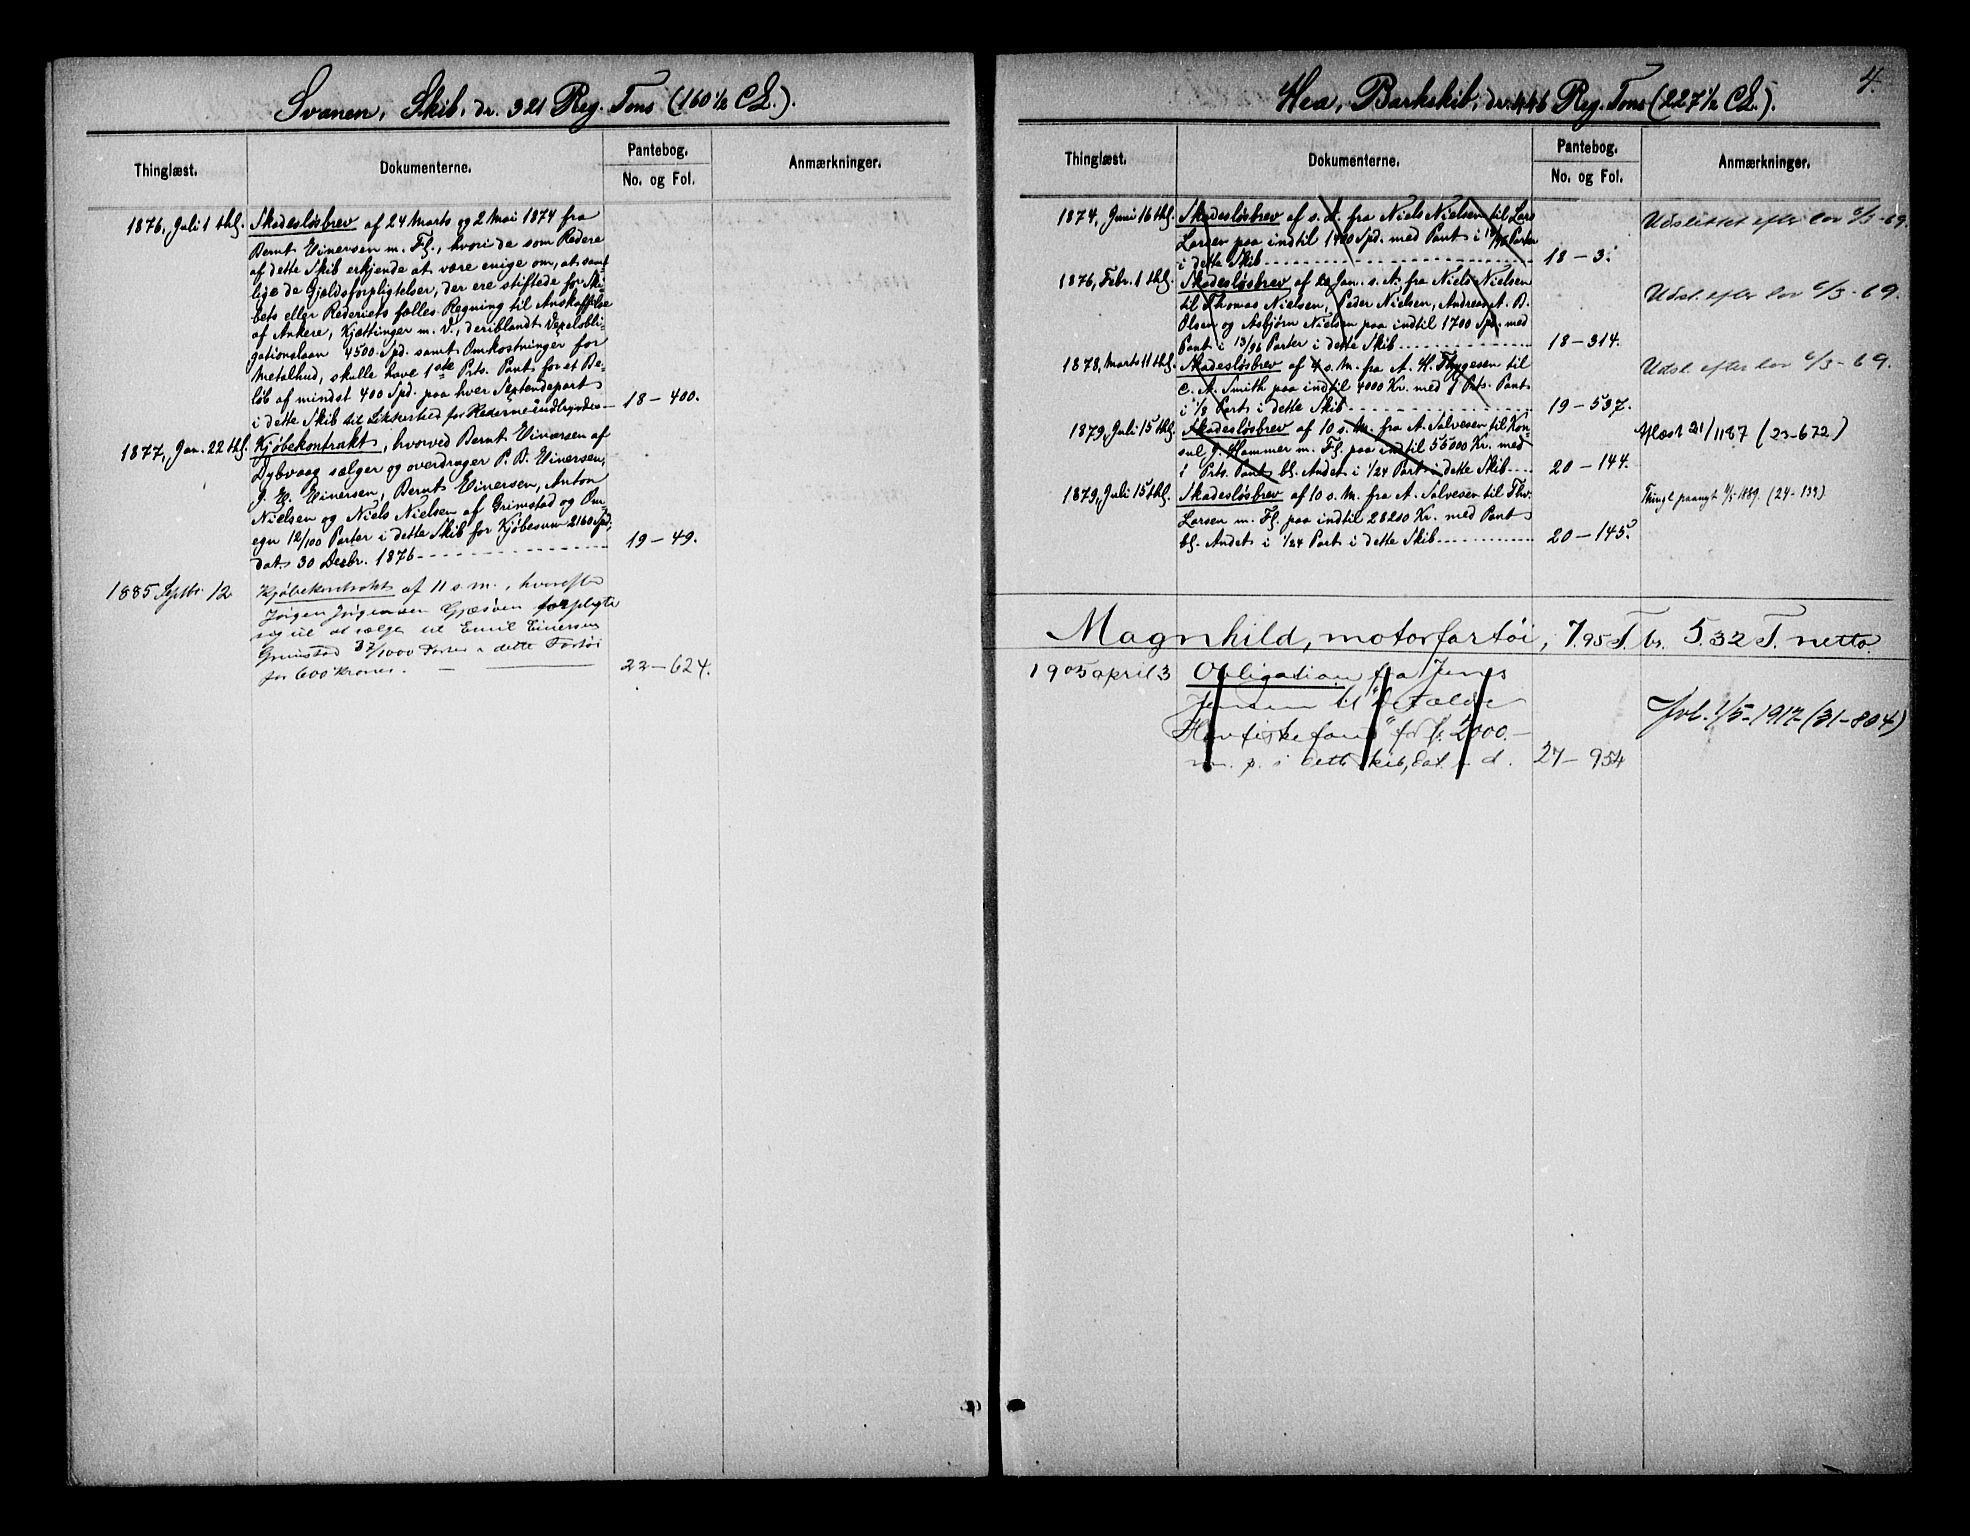 Svanen, Skib, dr. 321 Reg. Tons (160 1/2 CL.).
Thinglæst.
Dokumenterne.
Pantebog.
No. og Fol.
Anmærkninger.
1876, Juli 1 thl. Skadesløsbrev af 24 Marts og 2 Mai 1874 fra
Bernt Einersen m. Fl., hvori de som Redere
af dette Skib erkjende at være enige om, at samt-
lige de Gjældsforpligtelser, der ere stiftede for Ski-
bets eller Rederiets fælles Regning til Anskaffelse
af Ankere, Kjættinger m. V., deriblandt Vexelobli-
gationslaan 4500 Spd. samt Omkostninger for
Metalhud, skulle have 1ste Prts. Pant for et Be-
løb af mindst 400 Spd. paa hver
i dette Skib til Sikkerhed for Rederne indbyrdes 18 – 400.
1877, Jan. 22 thl. Kjøbekontrakt, hvorved Bernt Einersen af
Dybvaag sælger og overdrager P. B. Einersen,
J. E. Einersen, Bernt Einersen, Anton
Nielsen og Niels Nielsen af Grimstad og Om-
egn 12/100 Parter i dette Skib for Kjøbesum 2160 Spd.
dat. 30 Decbr. 1876 19 – 49.
1885 Septbr. 12 Kjøbekontrakt af 11 s. m., hvorefter
Jørgen Jørgensen Gjæsøen forpligter
sig til at sælge til Emil Einersen
Grimstad 37/1000 Parter i dette Fartøi
for 600 Kroner. 22 – 624.
4.
Hea, Barkskib, dr. 446 Reg. Tons (227 1/2 CL.).
Thinglæst.
Dokumenterne.
Pantebog.
No. og Fol.
Anmærkninger.
1874, Juni 16 thl. Skadesløsbrev af s. d. fra Niels Nielsen til Lars
Larsen paa indtil 1400 Spd. med Pant i Parter
i dette Skib 18 – 3.
Udslettet efter lov 6/3 – 69.
1876, Febr. 1 thl. Skadesløsbrev af Jan. s. A. fra Niels Nielsen
til Thomas Nielsen, Peder Nielsen, Andreas A. B.
Olsen og Asbjørn Nielsen paa indtil 1700 Spd. med
Pant i 13/96 Parter i dette Skib 18 – 314.
Udsl. efter lov 6/3 – 69.
1878, Marts 11 thl. Skadesløsbrev af 4 s. M. fra A. H. Thygesen til
C. A. Smith paa indtil 4000 Kr. med 1 Prts. Pant
i 1/8 Part i dette Skib 19 – 537.
Udsl. efter lov 6/3 – 69.
1879, Juli 15 thl. Skadesløsbrev af 10 s. M. fra A. Salvesen til Kon-
sul J. Hammer m. Fl. paa indtil 55000 Kr. med
1 Prts. Pant bl. Andet i 1/24 Part i dette Skib 20 – 144.
Aflæst 21/11 87 (23 – 672)
1879, Juli 15 thl. Skadesløsbrev af 10 s. M. fra A. Salvesen til Thv.
Larsen m. Fl. paa indtil 28200 Kr. med Pant
bl. Andet i 1/24 Part i dette Skib 20 – 145.
1889. (24 – 139)
Magnhild, motorfartøi, 7.95 T. br. 5.32 T. netto.
1905 april 3 Obligation fra Jens
Jensen til
Havfiskefond" for kr. 2000.–
m. p. i dette skib, dat. s. d. 27 – 954
Avl. 1/5 – 1917 (31 – 804)